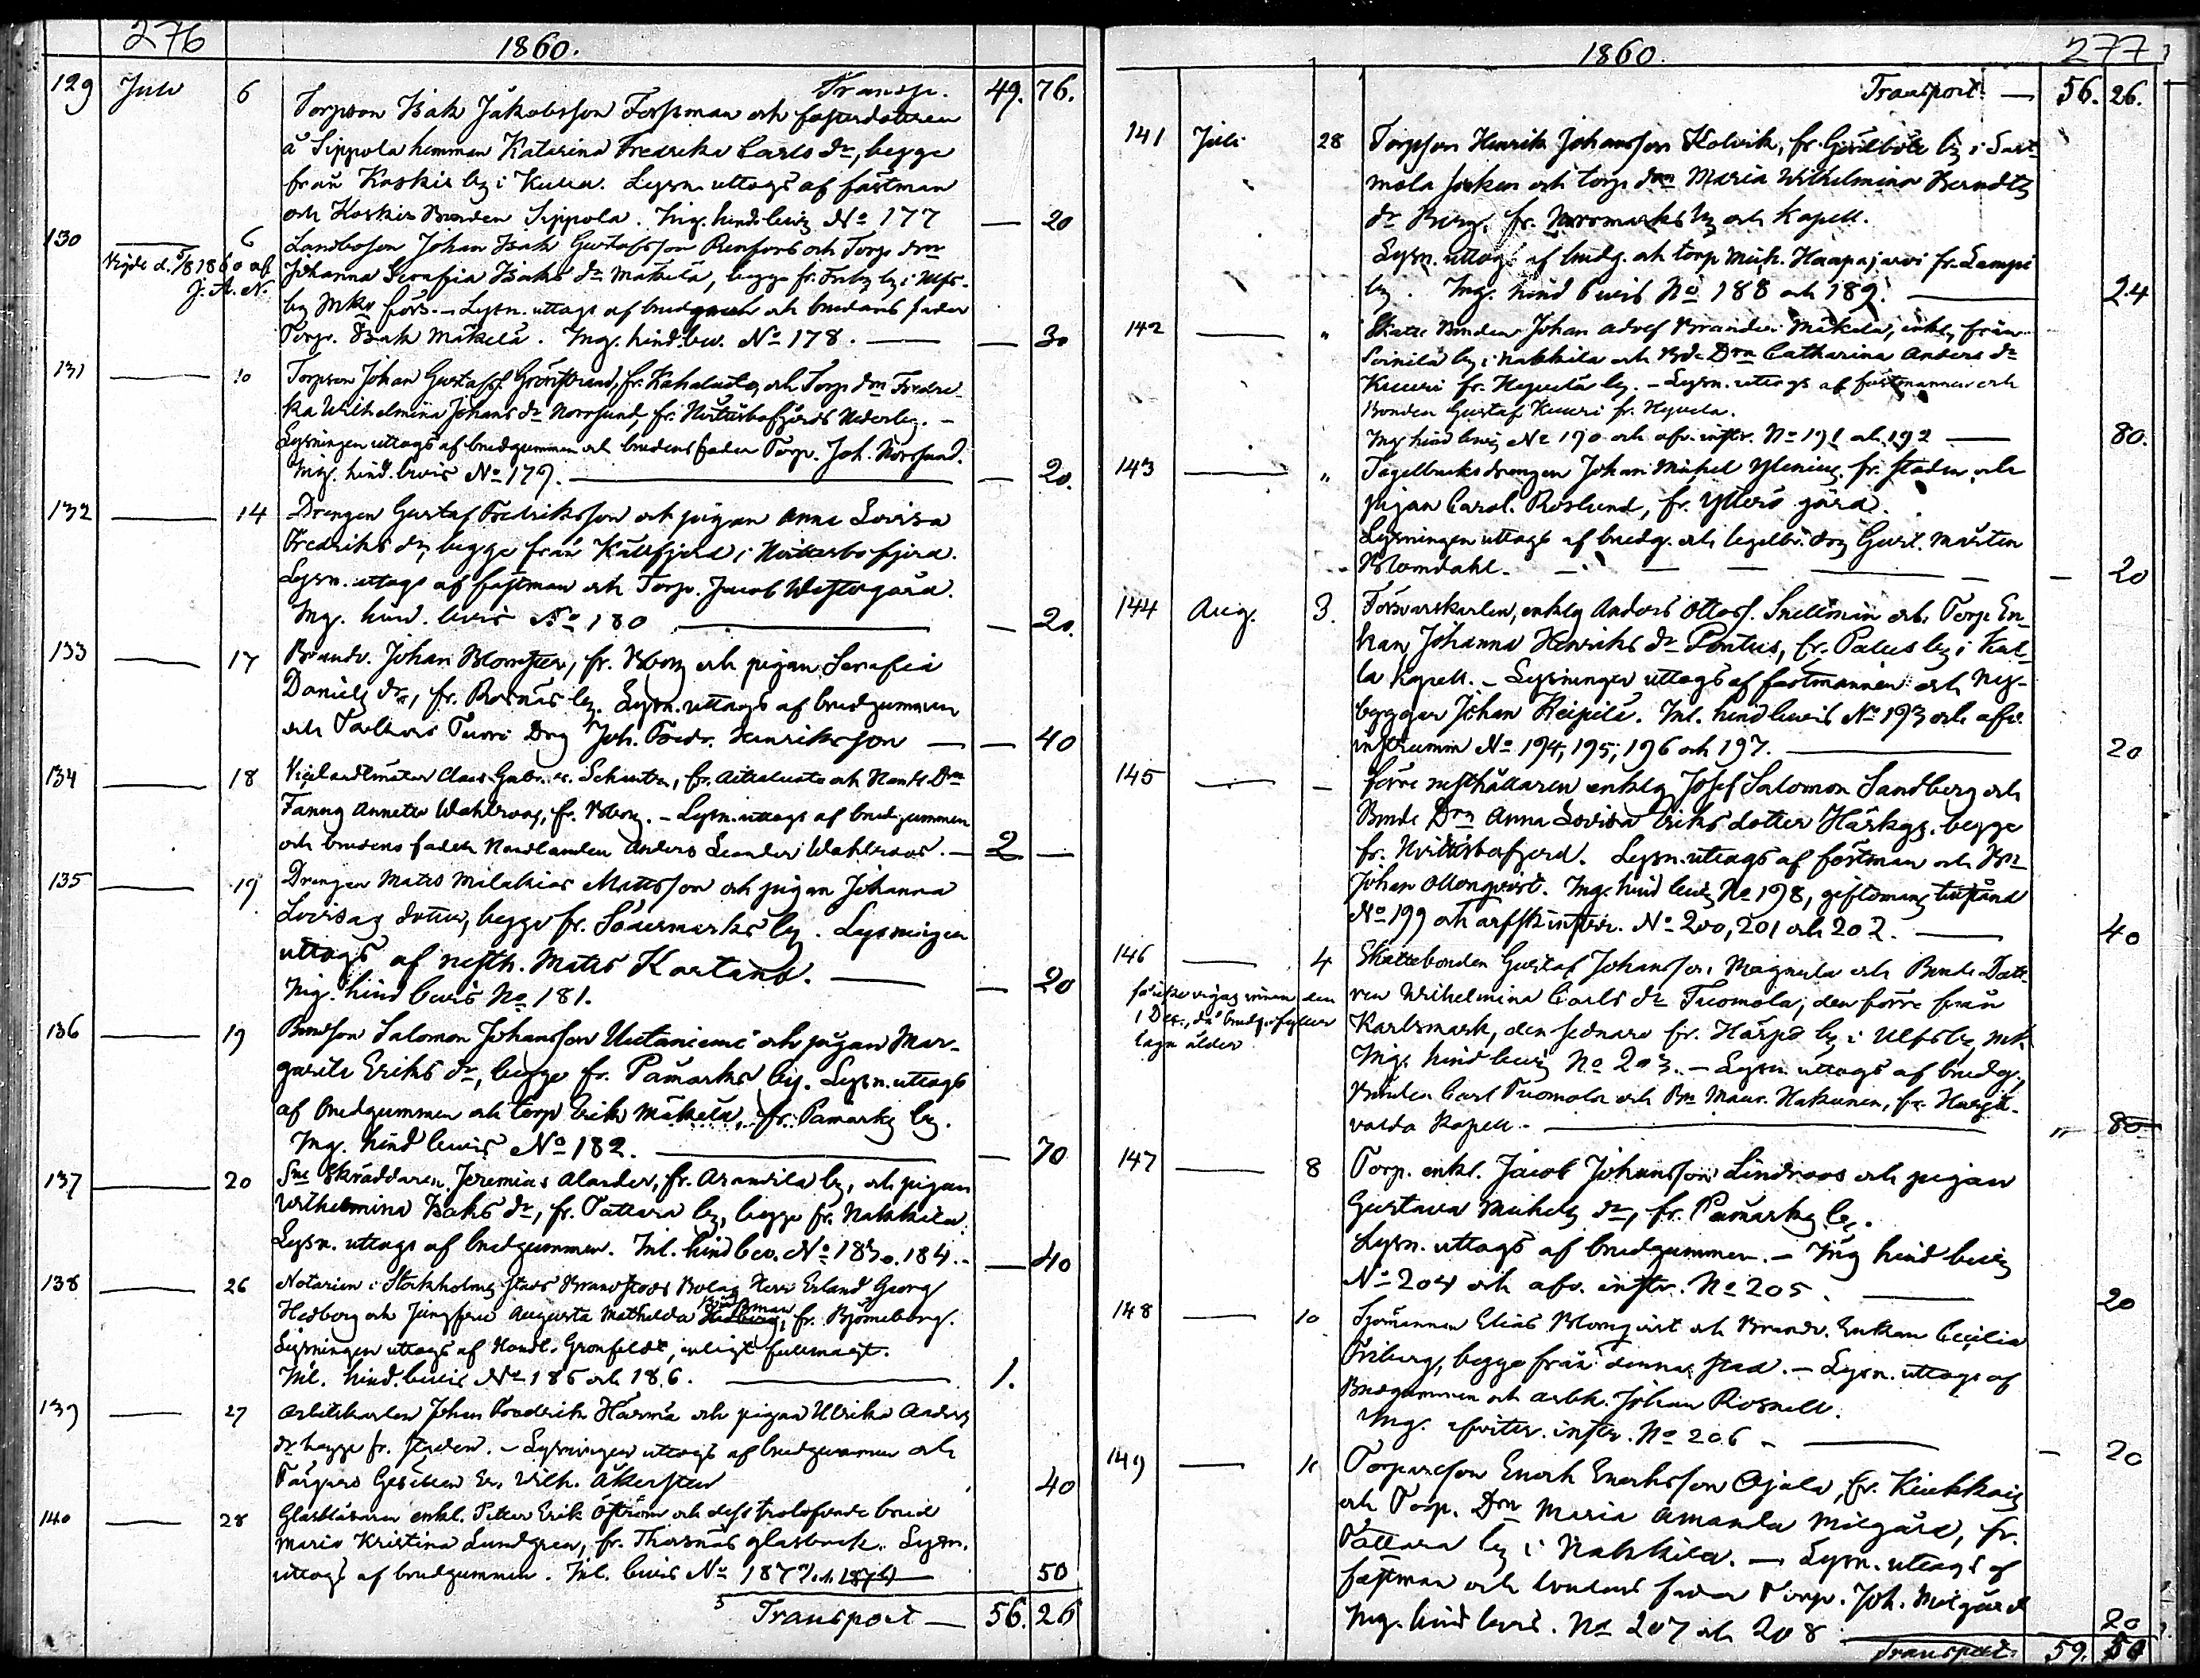 276
1860.
129 Juli 6 Transp. 49. 76.
Torpson Isak Jakobsson Forssman och
à Sippola hemman Katarina Fredrika Carls dr, begge
från Koskis by i Kulla. Lysn. uttogs af fästman
och Koskis Bonden Sippola. Ing. hind. bevis No 177 — 20
130 6 Landboson Johan Isak Gustafsson Renfors och Torp. drn
Vigde d. 5/8 1860 af
J. A. N.
Johanna Serafia Isaks dr Mäkelä, begge fr. by i Ulfs-
by Mko förs. — Lysn. uttogs af brudgum och brudens fader
Torp. Isak Mäkelä. Ing. hind. bev. No 178. — 30
131 10 Torpson Johan Gustafss. Grönstrand, fr. Kahaluoto, och Torp. drn Fredri-
ka Wilhelmina Johans dr Norrsund, fr. Hvittisbofjärds Nederby. —
Lysningen uttogs af brudgummen och brudens fader Torp. Joh. Norrsund.
Ing. hind. bevis No 179. — 20.
132 14 Drengen Gustaf Fredriksson och pigan Anna Lovisa
Fredriks dr, begge från Kållfjerd i Hvittisbofjerd.
Lysn. uttogs af fästman och Torp. Jacob Westergård.
Ing. hind. bevis No 180 — 20.
133 17 Brandv. Johan Blomster, fr. Bborg och pigan Serafia
Daniels dr, fr. Rosnäs by. Lysn. uttogs af brudgummen
och Tuori Drg Joh. Fredr. Henriksson — — 40
134 18 Viceladtmäter Claes Gabr. Schultz, fr. Aittaluoto och Handl. Drn
Fanny Annette Wahlroos, fr. Bborg. — Lysn. uttogs af brudgummen
och brudens fader Handlanden Anders Leander Wahlroos. — 2 —
135 19 Drengen Mats Milakias Mattsson och pigan Johanna
Lovisas dotter, begge fr. Södermarks by. Lysningen
uttogs af nesth. Mats Kortano. — — 20
Ing. hind bevis No 181.
136 19 Bondson Salomon Johansson Uutaniemi och pigan Mar-
gareta Eriks dr, begge fr. Påmarks by. Lysn. uttogs
af brudgummen och torp Erik Mäkelä, fr. Påmarks by.
Ing. hind bevis No 182. — — 70
137 20 Sne Skräddaren Jeremias Alander, fr. Arantila by, och pigan
Wilhelmina Isaks dr, fr. Tattara by, begge fr. Nakkila.
Lysn. uttogs af brudgummen. Inl. hind bev. No 183 o. 184. — — 40
138 26 Notarien i Stockholms stads Brandstods Bolag Herr Erland Georg
Hedberg och Jungfru Augusta Mathilda Hedberg, fr. Björneborg.
Lysningen uttogs af Handl. Grönfeldt, enligt fullmagt.
Inl. hind. bevis No 185 och 186. — 1.
139 27 Arbetskarlen Johan Fredrik Härmä och pigan Ulrika Anders
dr begge fr. staden. — Lysningen uttogs af brudgummen och
Färgare Gesällen Er. Vilh. Åkersten 40
140 28 Glasblåsaren enkl. Petter Erik Öström och dess trolofvade brud
Maria Kristina Lundgren, fr. Thorsnäs glasbruk. Lysn.
uttogs af brudgummen. Inl. bevis No 187 50
Transport — 56. 26
277
1860.
Transport — 56. 26.
141 Juli 28 Torpson Henrik Johansson Kolvik, fr. by i Sast-
mola socken och torp drn Maria Wilhelmina Berndts
dr Burg, fr. Norrmarks by och Kapell.
Lysn. uttogs af brudg. och torp Mich. Haapajärvi fr. Lampi
by. Ing. hind bevis No 188 och 189. — 24
142 " Skatte Bonden Johan Adolf Brander Mäkelä, enkl., från
Soinila by i Nakkila och Bde Drn Catharina Anders dr
Kuuri fr. Hyvelä by. — Lysn. uttogs af fästmannen och
Bonden Gustaf Kuuri fr. Hyvela.
Ing hind bevis No 190 och afv. instr. No 191 och 192 — 80.
143 " Tegelbruksdrengen Johan Mickel Ylenius, fr. staden, och
pigan Carol. Roslund, fr. Ytterö gård.
Lysningen uttogs af brudg. och tegelbr. drg Gust. Mårten
Blomdahl. — — 20
144 Aug. 3. Försvarskarlen, enkl Anders Ottoss. Snellman och Torp En-
kan, Johanna Henriks dr Pontus, fr. Palus by i Kul-
la Kapell. — Lysningen uttogs af fästmannen och Ny-
byggar Johan Keipilä. Inl. hind bevis No 193 och afv.
instrumen No 194, 195, 196 och 197. — 20
145 — förre nesthållaren enklg Josef Salomon Sandberg och
Bonde Drn Anna Lovisa Eriks dotter Härkys. begge
fr. Hvittisbofjerd. Lysn. uttogs af fästman och Bn
Johan Ollonqvist. Ing. hind bevis No 198, giftomans tillstånd
No 199 och arfskinstr. No 200, 201 och 202. — 40
146 4 Skattebonden Gustaf Johansson Magnula och Bonde Dott-
få icke vigas innan den
1 Dec., då brudg. fyller
lagn ålder
ren Wilhelmina Carls dr Tuomola; den förre från
Karlsmark, den sednare fr. Härpö by i Ulfsby mk.
Ing. hind bevis No 203. — Lysn. uttogs af brudg.,
Bonden Carl Tuomola och Bn Maur. Hakunen, fr. Harja-
valda Kapell. — " 80
147 8 Torp. enkl. Jacob Johansson Lindroos och pigan
Gustava Mickels dr, fr. Påmarks by.
Lysn. uttogs af brudgummen. — Ing hind bevis
No 204 och afv. instr. No 205. — 20
148 10 Sjömannen Elias Blomqvist och Brandv. Enkan Cecilia
Friberg, begge från denna stad. — Lysn. uttogs af
Brudgummen och arbk. Johan Rosnell.
Ing. afvitter. instr. No 206 — — 20
149 11 Torpareson Enoch Enochsson Ojala, fr. Kiukkais
och Torp. Drn Maria Amanda Melgård, fr.
Tattara by i Nakkila. — Lysn. uttogs af
fästman och brudens fader Torp. Joh. Melgård
Ing. hind bevis. No 207 och 208 20
Transport: 59. 50